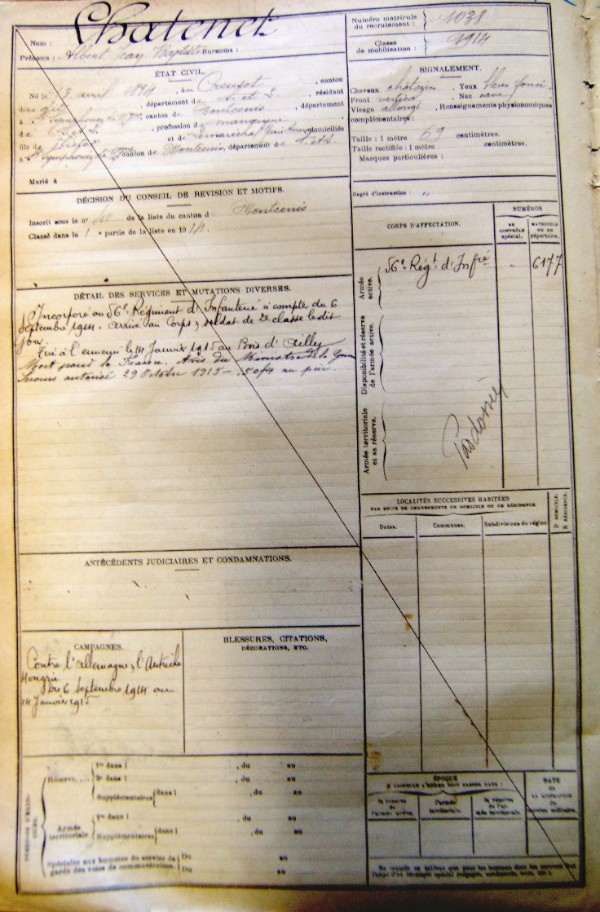 Chatenet
Nom :
Prénoms : Albert Jean Baptiste Surnoms :
Numéro matricule du recrutement : 1038
Classe de mobilisation : 1914
ÉTAT CIVIL.
Né le 3 avril 1894, au Creusot, canton
dudit, département de S et L, résidant
canton de Montcenis, département
de S et L, profession de
fils de et de domiciliés
canton de Montcenis, département de S et L
Marié à
SIGNALEMENT.
Cheveux châtains Yeux bleus foncé
Front vertical Nez
Visage allongé, Renseignements physionomiques
complémentaires :
Taille : 1 mètre 69 centimètres.
Taille rectifiée : 1 mètre centimètres.
Marques particulières :
Degré d'instruction :
DÉCISION DU CONSEIL DE REVISION ET MOTIFS.
Inscrit sous le n° de la liste du canton d Montcenis
Classé dans la 1 e partie de la liste en 1914
CORPS D'AFFECTATION.
NUMÉROS
AU CONTRÔLE SPÉCIAL.
MATRICULE OU AU RÉPERTOIRE.
Armée active.
56e Régt d'Infie
6177
Disponibilité et réserve de l'armée active.
Armée territoriale et sa réserve.
DÉTAIL DES SERVICES ET MUTATIONS DIVERSES.
Incorporé au 56e Régiment d'Infanterie à compter du 6
Septembre 1914. arrivé au Corps & soldat de 2e classe le dit
jour.
Tué à l'ennemi le 14 Janvier 1915 au Bois d'Ailly
Mort pour la France. Avis du Ministre de la Guerre
Secours autorisé 29 Octobre 1915 - 150f au père.
LOCALITÉS SUCCESSIVES HABITÉES
PAR SUITE DE CHANGEMENTS DE DOMICILE OU DE RÉSIDENCE.
Dates.
Communes.
Subdivisions de région
D. DOMICILE. R. RÉSIDENCE.
ANTÉCÉDENTS JUDICIAIRES ET CONDAMNATIONS.
CAMPAGNES.
Contre l'Allemagne & l'Autriche
Hongrie
Du 6 Septembre 1914 au
14 Janvier 1915
BLESSURES, CITATIONS,
DÉCORATIONS, ETC.
Réserve....
1re dans l , du au
2e dans l , du au
Supplémentaires dans l , du au
Armée territoriale
1re dans l , du au
Supplémentaires dans l , du au
Spéciales aux hommes du service de garde des voies de communication.
Du au
Du au
ÉPOQUE
À LAQUELLE L'HOMME DOIT PASSER DANS :
la réserve de l'armée active.
l'armée territoriale.
la réserve de l'armée territoriale.
DATE DE LA LIBÉRATION du service militaire.